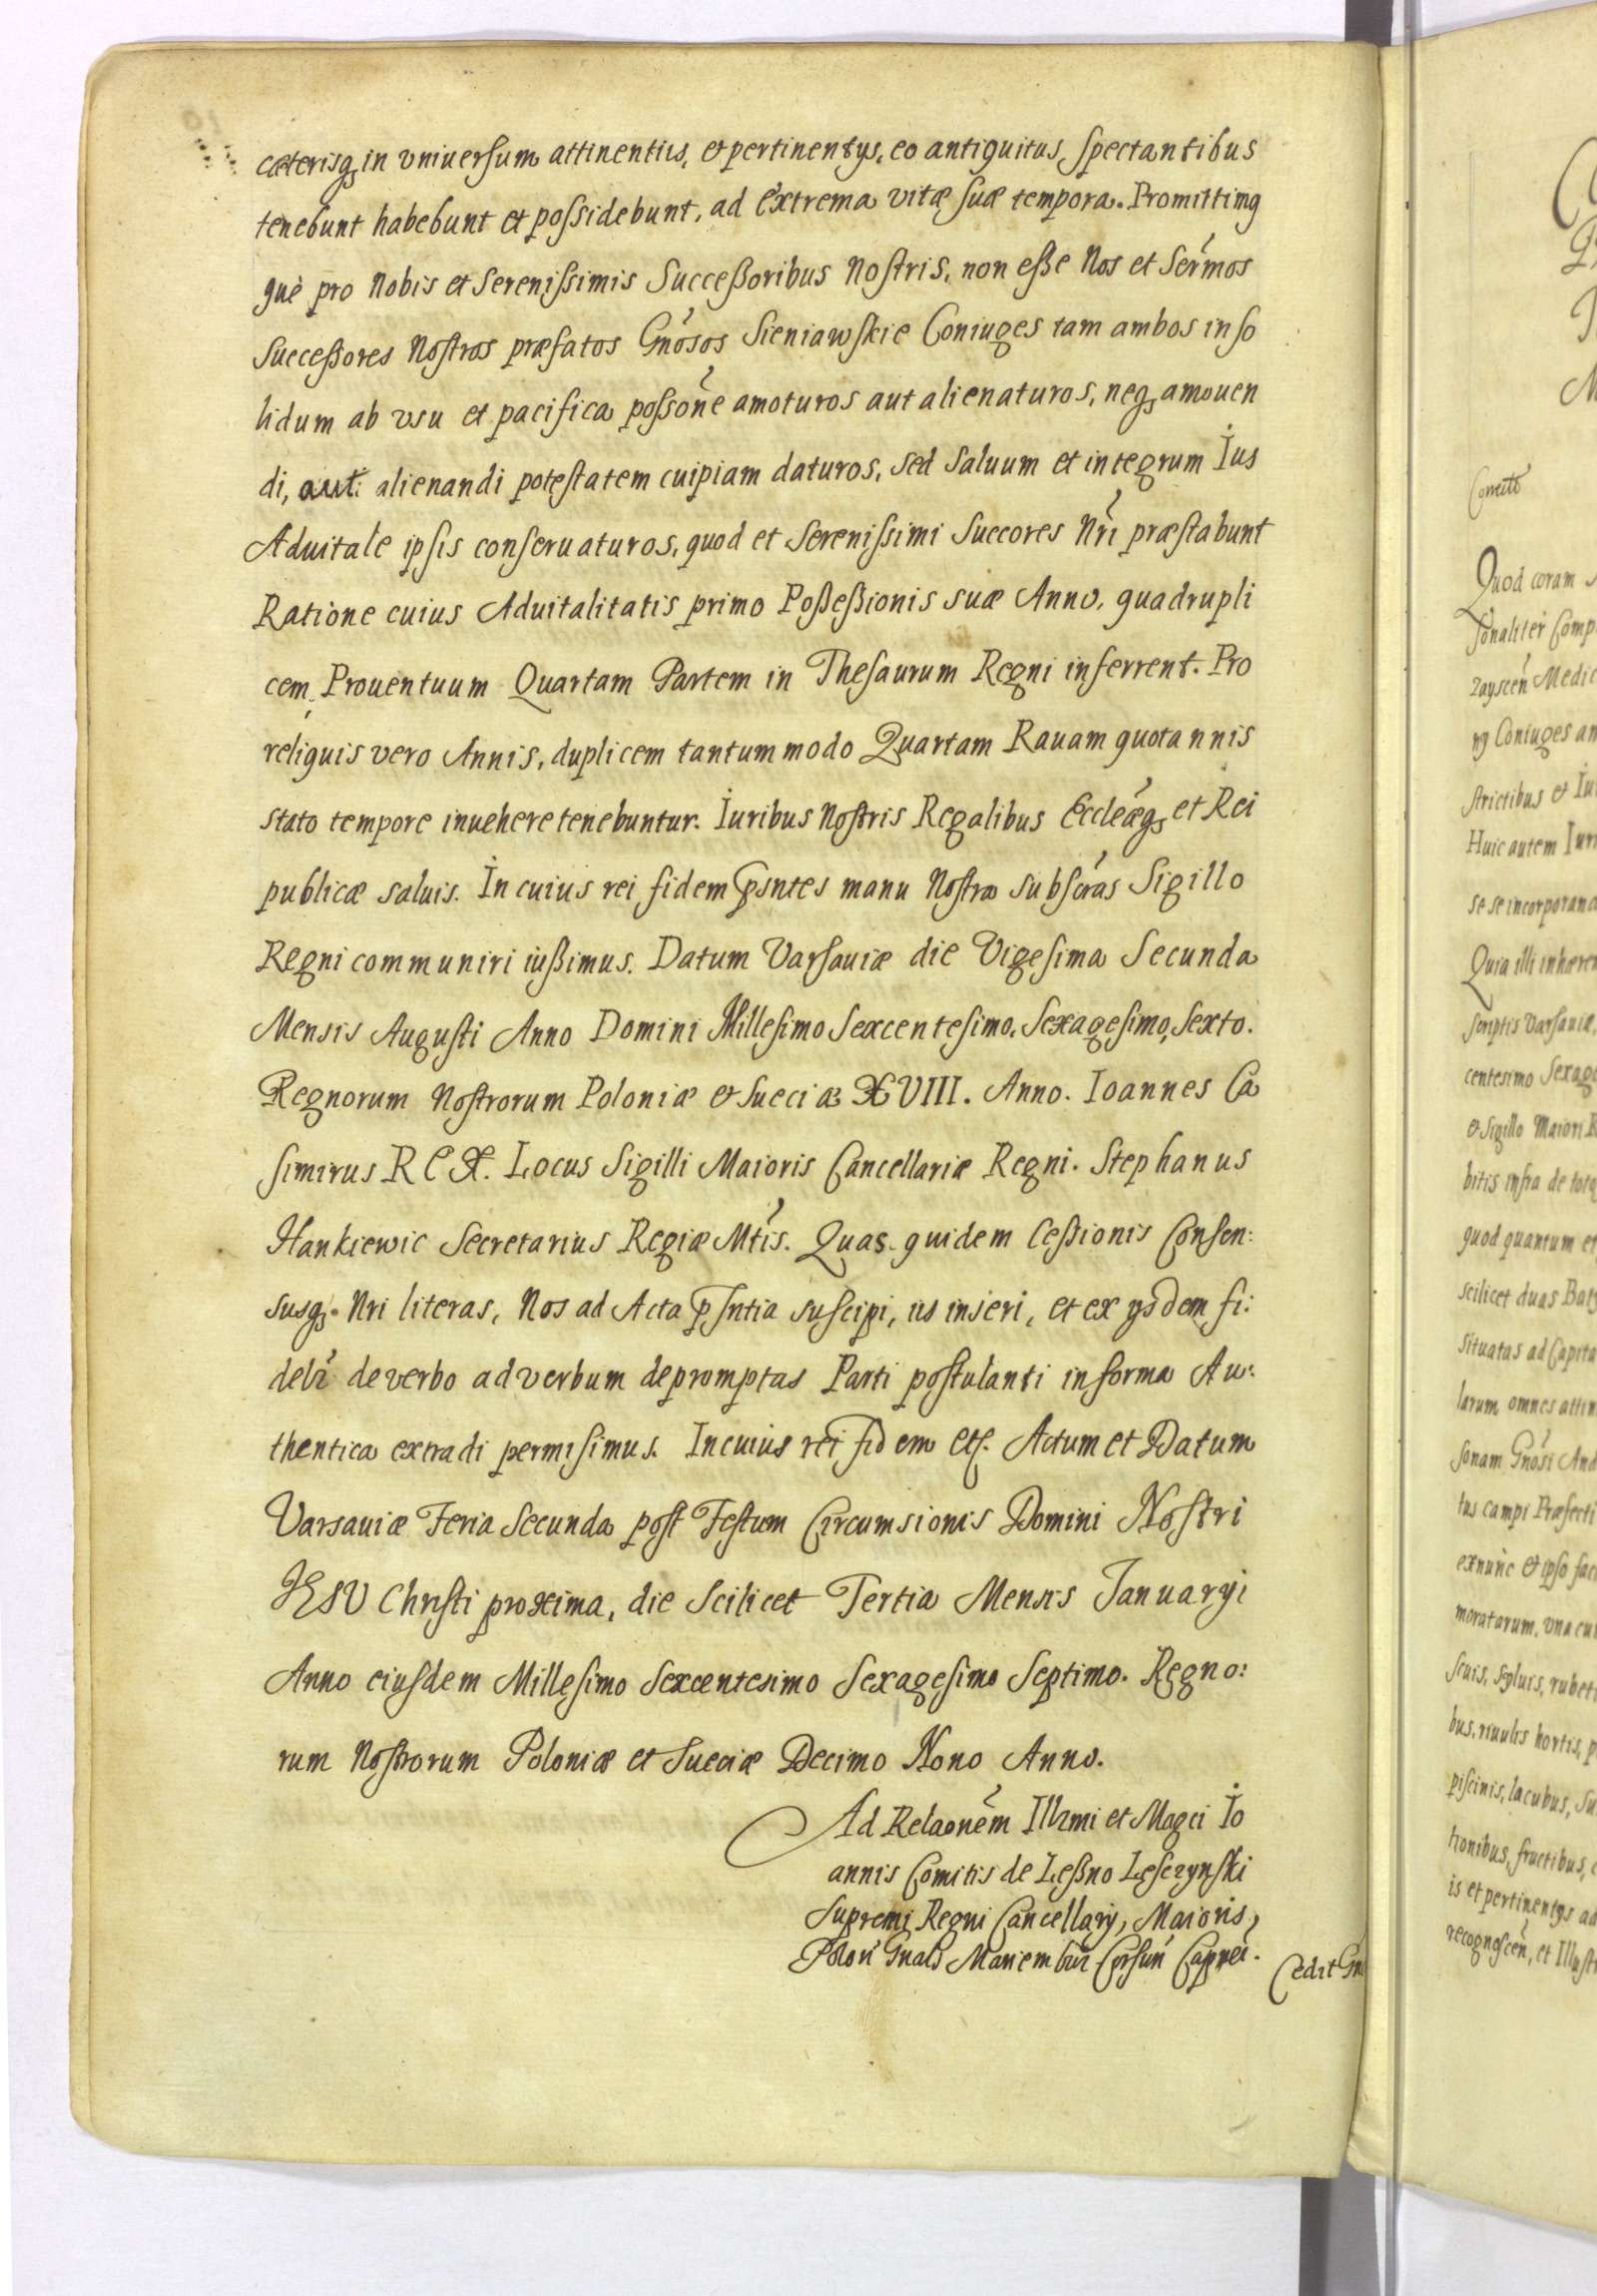 cæterisq, in vniuersum attinentiis, et pertinentys, eo antiquitus, spectantibus
tenebunt habebunt et possidebunt, ad Extrema vitæ suæ tempora. Promittimq
què pro Nobis et Serenissimis Successoribus Nostris, non esse Nos et Sermos
Successores Nostros præfatos Gnosos Sieniawskie Coniuges tam ambos in so
lidum ab vsu et pacifica possone amoturos aut alienaturos, neq, amouen
di, aut alienandi potestatem cuipiam daturos, sed saluum et integrum Ius
Aduitale ipsis conseruaturos, quod et Serenissimi Succores Nri præstabunt
Ratione cuius Aduitalitatis primo Possessionis suæ Anno, quadrupli
cem Prouentuum Quartam Partem in Thesaurum Regni inferrent. Pro
reliquis vero Annis, duplicem tantummodo Quartam Rauam quotannis
stato tempore inuehere tenebuntur. Iuribus Nostris Regalibus Eccleæq, et Rei
publicæ saluis. In cuius rei fidem psntes manu Nostra subscras Sigillo
Regni communiri iussimus. Datum Varsauiæ die Vigesima Secunda
Mensis Augusti Anno Domini Millesimo Sexcentesimo, Sexagesimo, Sexto.
Regnorum Nostrorum Poloniæ et Sueciæ XVIII. Anno. Ioannes Ca
simirus REX. Locus Sigilli Maioris Cancellariæ Regni. Stephanus
Hankiewic Secretarius Regiæ Mtis. Quas quidem Cessionis Consen:
susq, Nri literas, Nos ad Acta psntia suscipi, iis inseri, et ex ysdem fi:
delr de verbo ad verbum depromptas Parti postulanti in forma Au:
thentica extradi permisimus. In cuius rei fidem etc. Actum et Datum
Varsauiæ Feria Secunda post Festum Circumsionis Domini Nostri
IESV Christi proxima, die Scilicet Tertia Mensis Januaryi
Anno eiusdem Millesimo Sexcentesimo Sexagesimo Septimo. Regno:
rum Nostrorum Poloniæ et Sueciæ Decimo Nono Anno.
Ad Relaonem Illrmi et Magci Io
annis Comitis de Lessno Lesczynski
Supremi Regni Cancellary, Maioris,
Polon Gnalis Corsun Capnei.
Cedit Gn
Quod coram
sonaliter Comp
Medic
Coniuges am
strictibus et Iu
Huic autem Iur
se se incorporand
Quia illi inhæren
scriptis Varsauiæ,
centesimo Sexage
et Sigillo Maiori R
bitis infra de tota
quod quantum et
scilicet duas Bat
situatas ad Capita
larum omnes attin
sonam Gnosi And
tus campi Præfecti
exnunc et ipso fac
moratarum, vna cu
syluis, rubet
bus, riuulis hortis, p
piscinis, lacubus, su
fructibus, c
is et pertinentys ad
recognoscen, et Illust